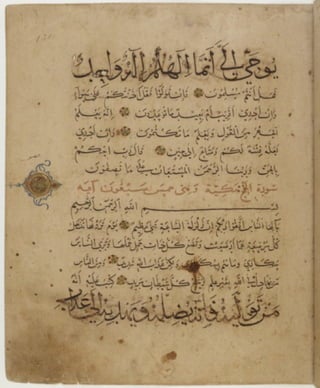 يوحى إلي أنما إلهكم إله واحد
فهل أنتم مسلمون فإن تولوا فقل آذنتكم على سواء
وإن أدري أقريب أم بعيد ما توعدون إنه يعلم
الجهر من القول ويعلم ما تكتمون وإن أدري
لعله فتنة لكم ومتاع إلى حين قال رب احكم
بالحق وربنا الرحمن المستعان على ما تصفون
سورة الحج مكية وهي خمس وسبعون آية
بسم الله الرحمن الرحيم
يا أيها الناس اتقوا ربكم إن زلزلة الساعة شيء عظيم يوم ترونها تذهل
كل مرضعة عما أرضعت وتضع كل ذات حمل حملها وترى الناس
سكارى وما هم بسكارى ولكن عذاب الله شديد ومن الناس
من يجادل في الله بغير علم ويتبع كل شيطان مريد كتب عليه أنه
من تولاه فأنه يضله ويهديه إلى عذاب